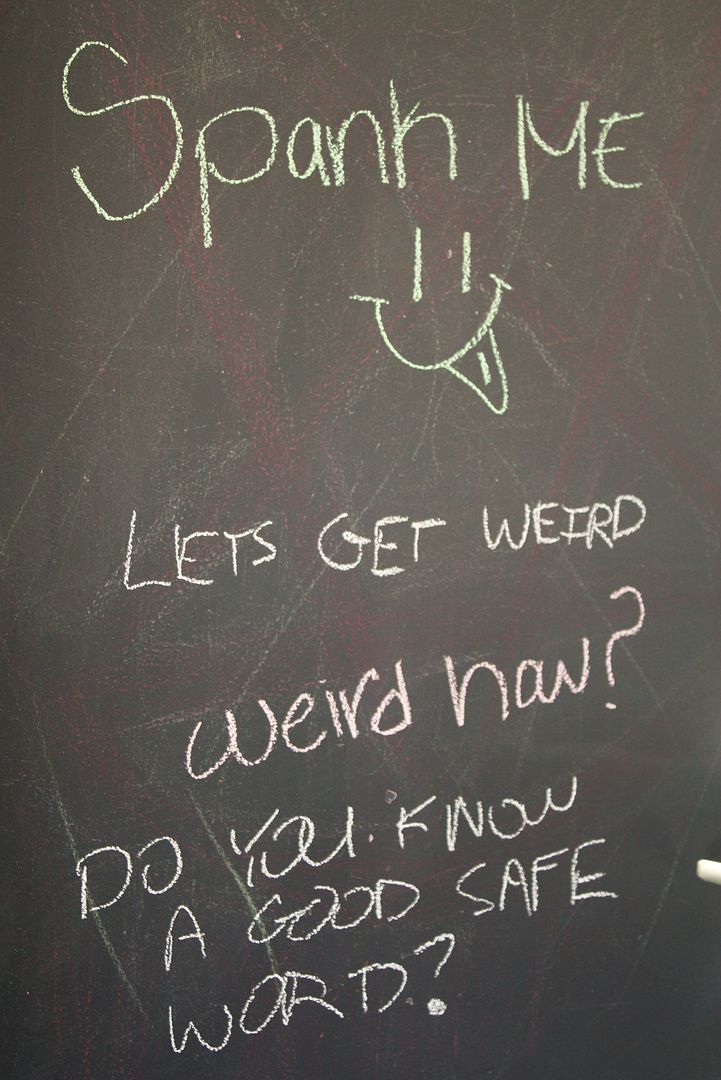 Spank ME
LETS GET WEIRD
weird how?
DO YOU KNOW
A GOOD SAFE
WORD?